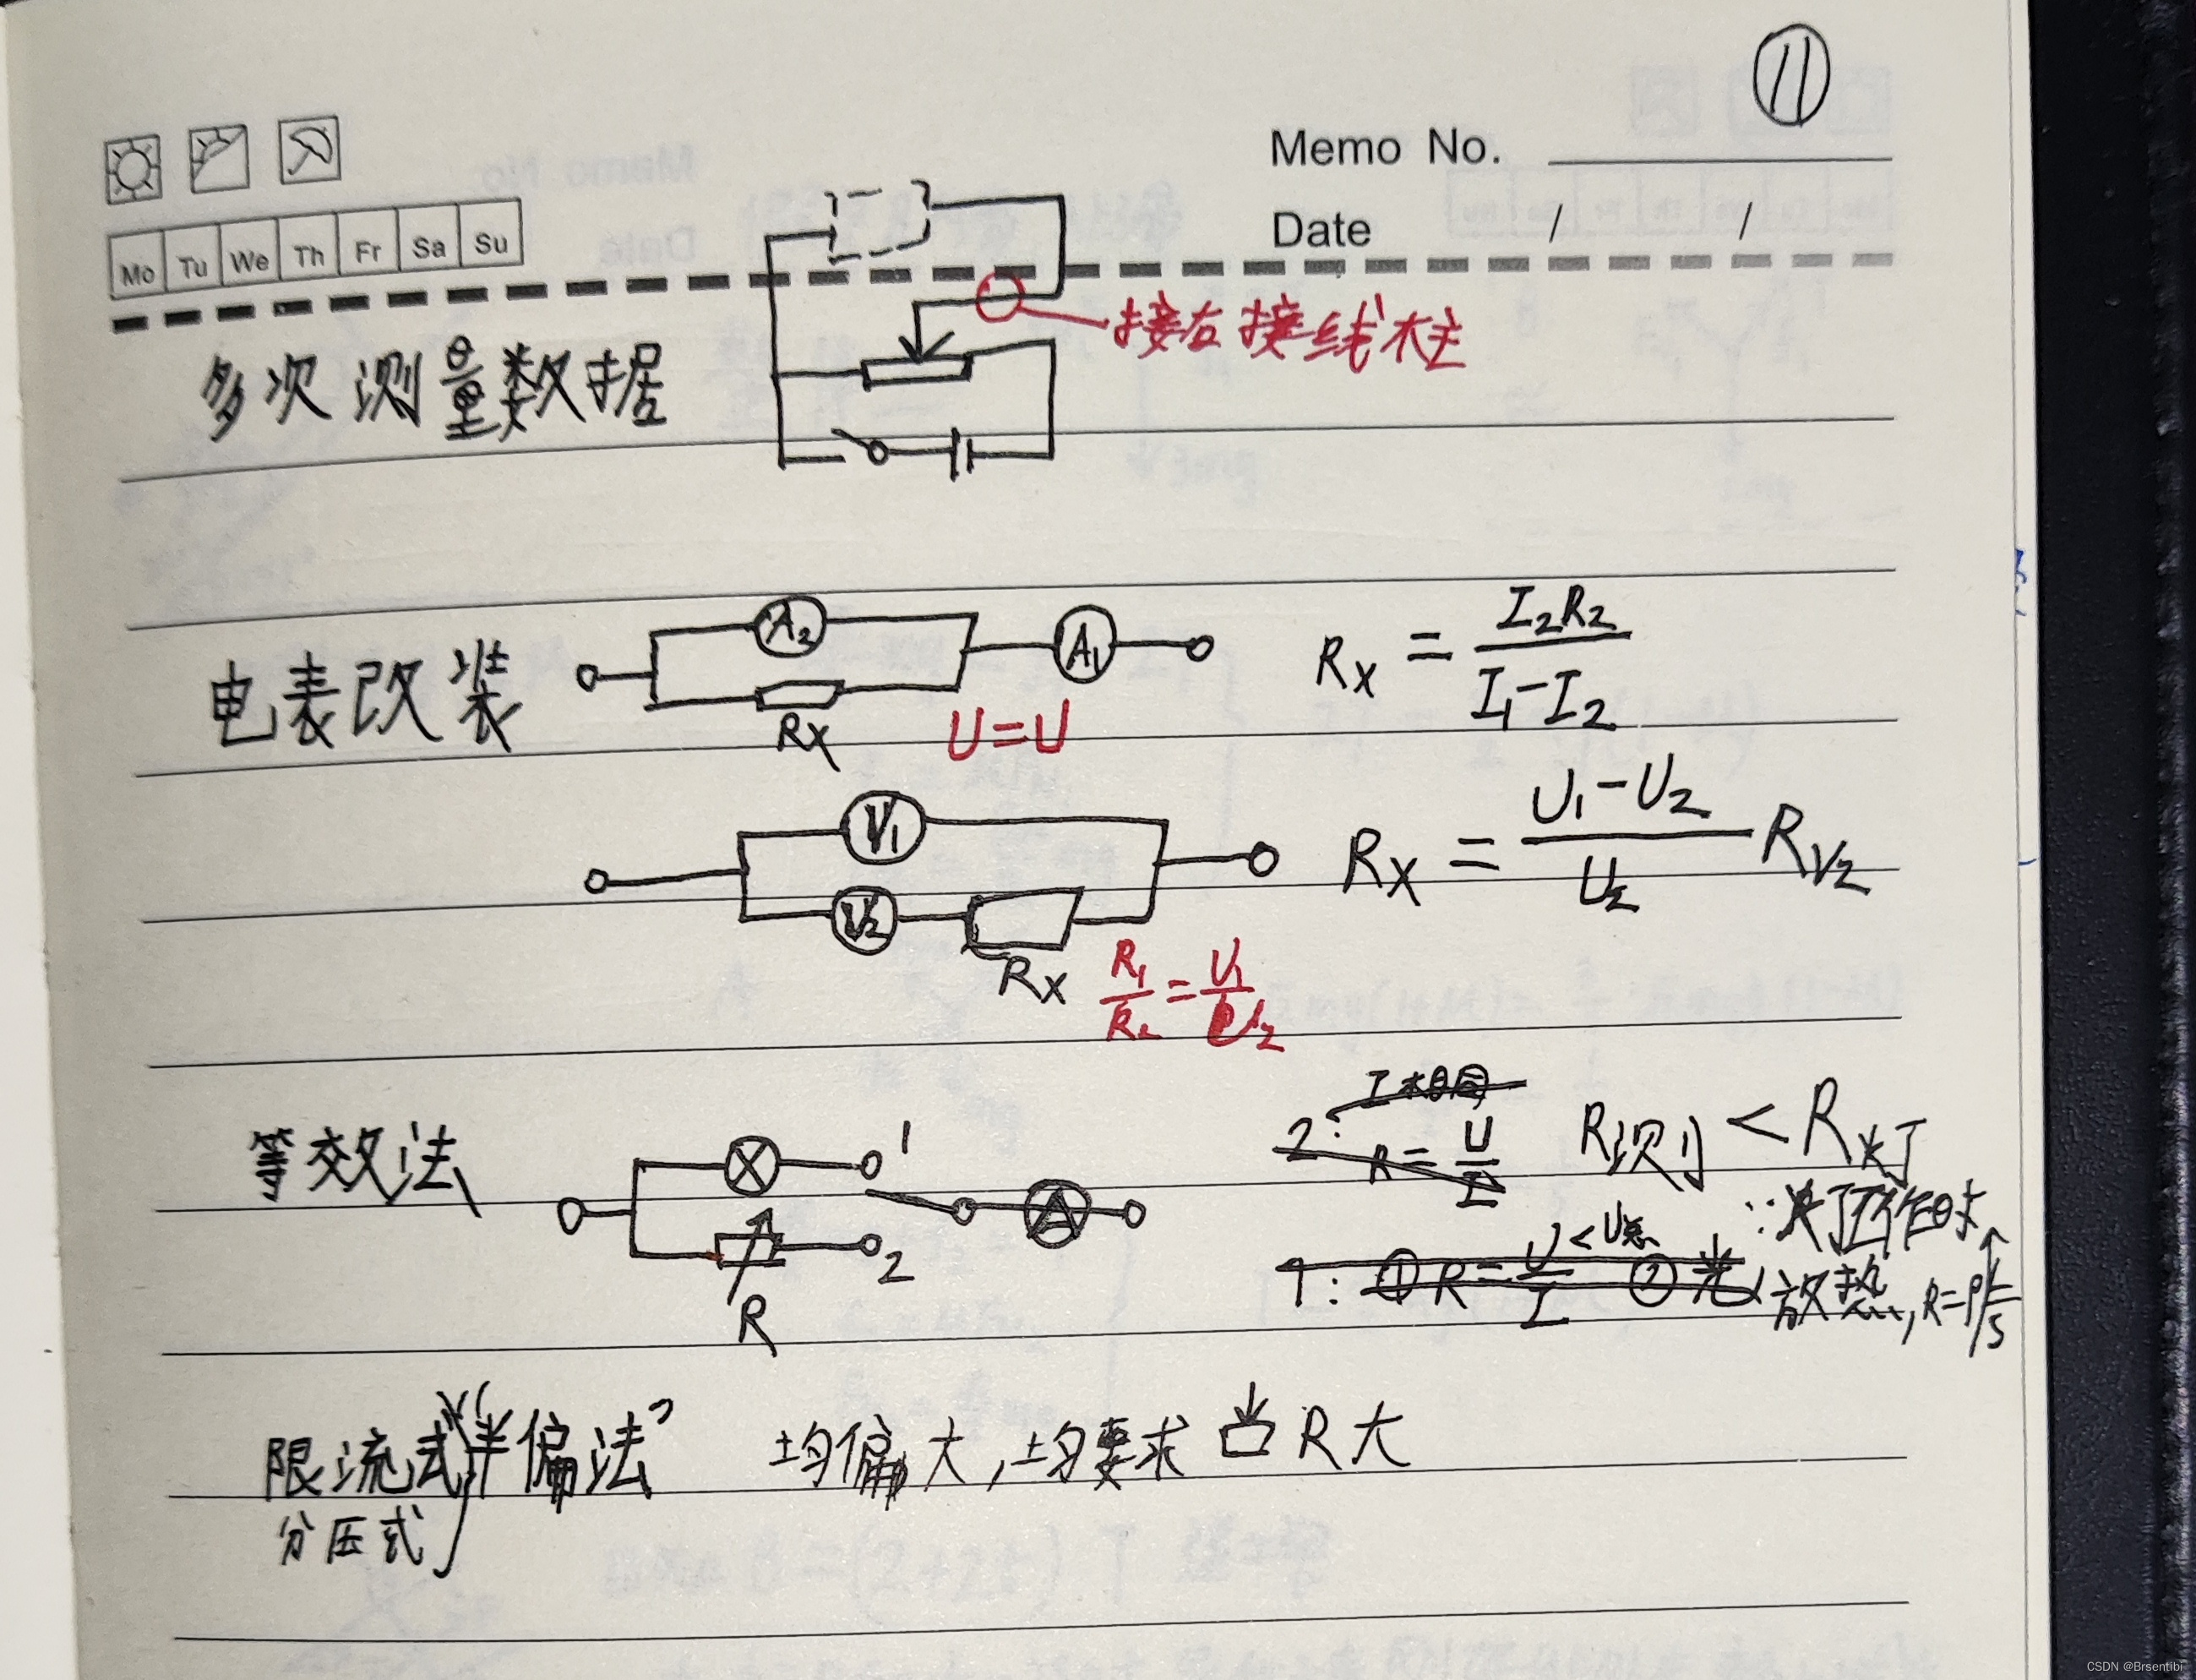 ⑪
Memo No.
Date / /
Mo Tu We Th Fr Sa Su
接右接线柱
多次测量数据
电表改装
A₂ A₁
Rx
U=U
Rx = I₂R₂/(I₁-I₂)
V₁
V₂
Rx
R₁/R₂ = U₁/U₂
Rx = (U₁-U₂)/U₂ R_V₂
等效法
1
2
A
R
2: R = U/I
R测 < R灯
∵灯工作时
放热, R=ρL/S
1: ① R = U/I < U总 ② 光
限流式 "半偏法" 均偏大,均要求 R大
分压式
CSDN @Brsentibi